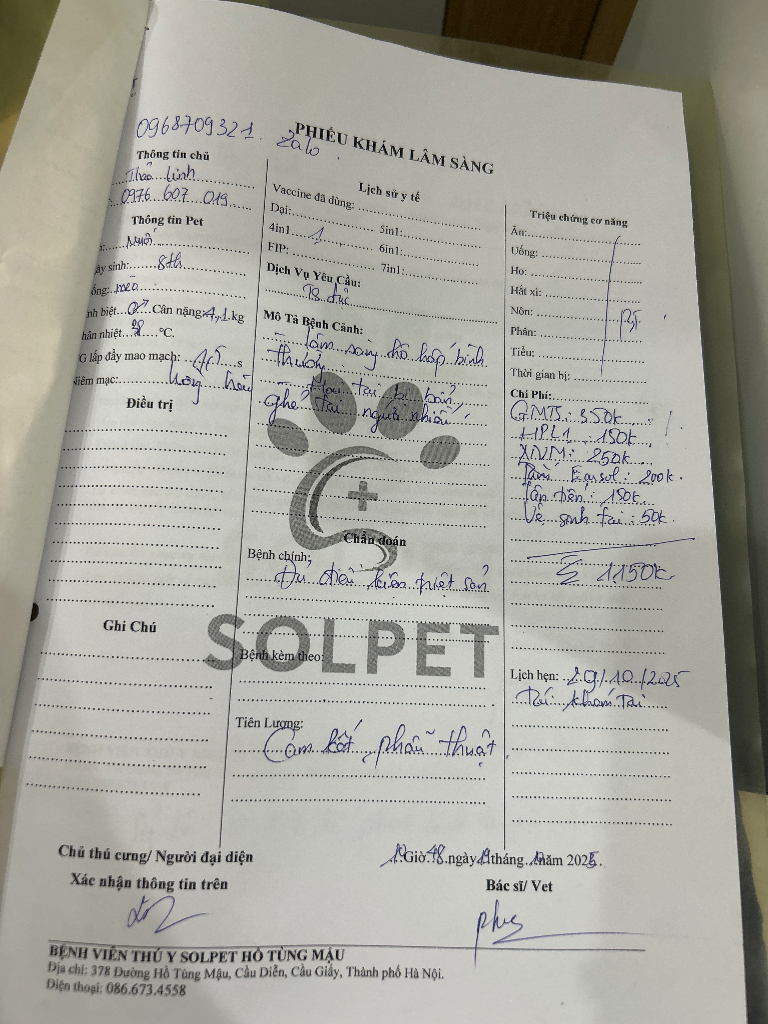 0968709321. Zalo.
PHIẾU KHÁM LÂM SÀNG
Thông tin chủ
Thảo Linh
0976 607 019
Thông tin Pet
Muối
ày sinh: 8th
ống: mèo
nh biệt ♂ Cân nặng: 4,1 kg
hân nhiệt 38 °C.
G lấp đầy mao mạch: 1,5 s
Niêm mạc: hồng hào
Điều trị
Ghi Chú
Lịch sử y tế
Vaccine đã dùng:
Dại: 5in1:
4in1 1 6in1:
FIP: 7in1:
Dịch Vụ Yêu Cầu:
TS đực
Mô Tả Bệnh Cảnh:
- Lâm sàng hô hấp bình
thường
- tai bị bẩn,
ghẻ tai người nhiều
Chẩn đoán
Bệnh chính:
Đủ điều kiện triệt sản
SOLPET
Bệnh kèm theo:
Tiên Lượng:
Cam kết phẫu thuật
Triệu chứng cơ năng
Ăn:
Uống:
Ho:
Hắt xì:
Nôn:
BT
Phân:
Tiểu:
Thời gian bị:
Chi Phí:
GMTS: 350k
HPL1: 150k
XNM: 250k
Earsol: 200k
Tận tiền: 150k
Vệ sinh tai: 50k
Σ 1150k
Lịch hẹn: 29/10/2025
Tái khám Tai
Chủ thú cưng/ Người đại diện
Xác nhận thông tin trên
19 Giờ 48 ngày 19 tháng 10 năm 2025.
Bác sĩ/ Vet
BỆNH VIỆN THÚ Y SOLPET HỒ TÙNG MẬU
Địa chỉ: 378 Đường Hồ Tùng Mậu, Cầu Diễn, Cầu Giấy, Thành phố Hà Nội.
Điện thoại: 086.673.4558